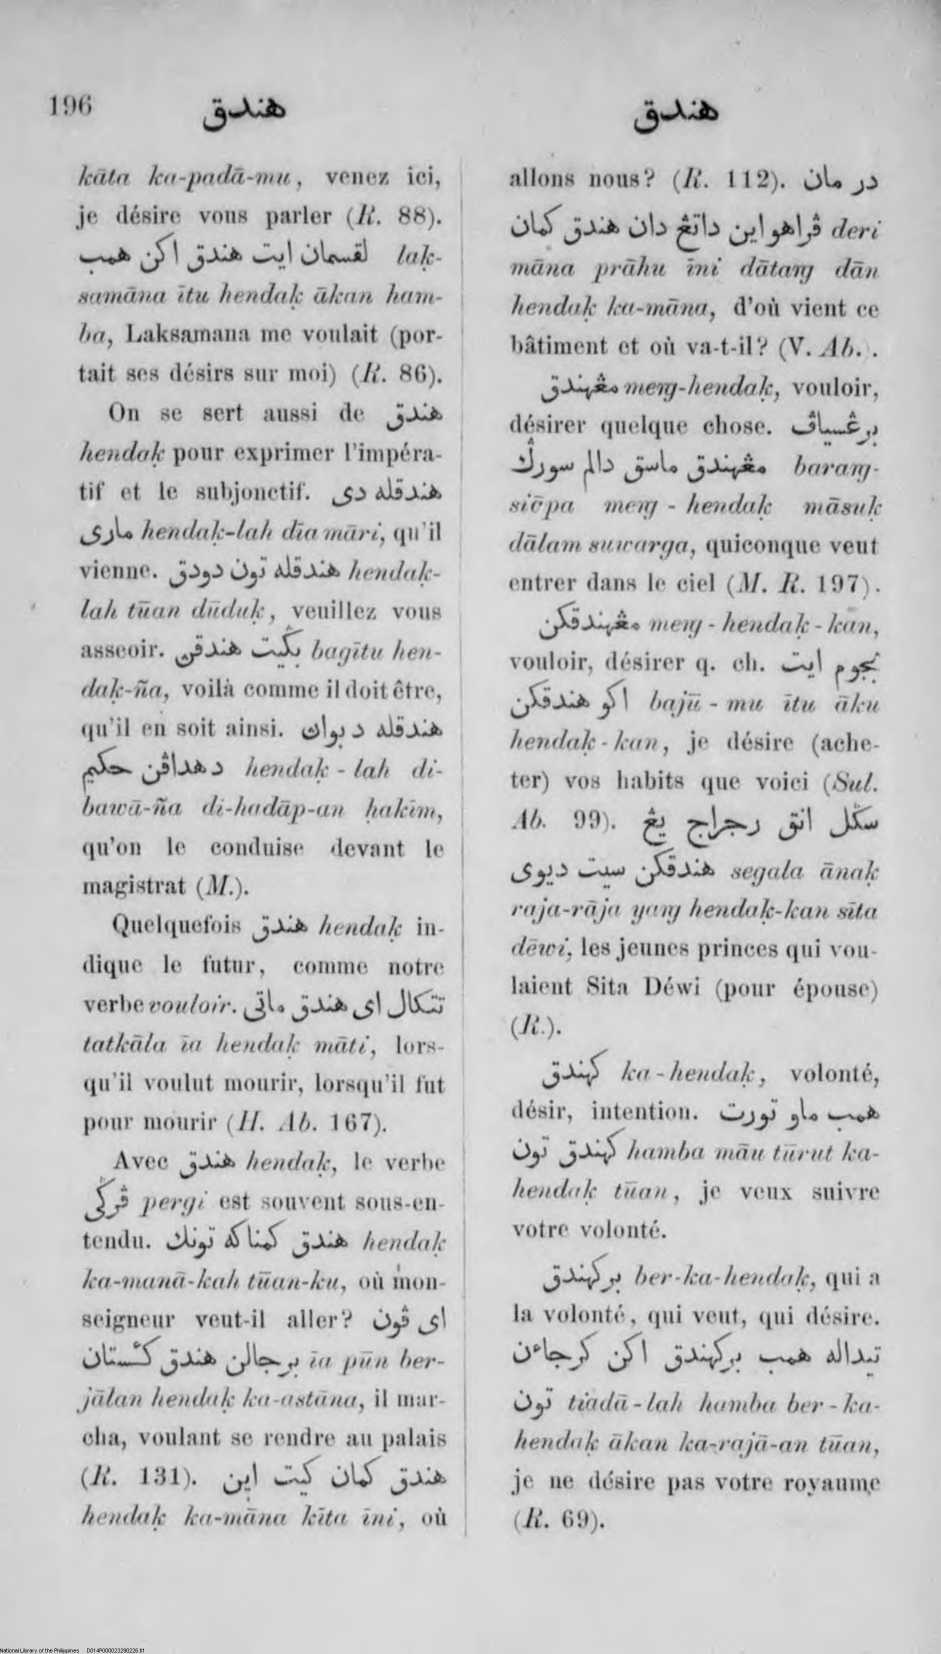 196 هندق
هندق
kāta ka-padā-mu, venez ici,
je désire vous parler (R. 88).
لقسمان ايت هندق اكن همب laḳ-
samāna ītu hendaḳ ākan ham-
ba, Laksamana me voulait (por-
tait ses désirs sur moi) (R. 86).
On se sert aussi de هندق
hendaḳ pour exprimer l'impéra-
tif et le subjonctif. هندقله دى
مارى hendaḳ-lah dīa māri, qu'il
vienne. هندقله تون دودق hendaḳ-
lah tūan dūduḳ, veuillez vous
asseoir. بڬيت هندقن bagītu hen-
daḳ-ña, voilà comme il doit être,
qu'il en soit ainsi. هندقله دبوان
دهداڤن حكيم hendaḳ-lah di-
bawā-ña di-hadāp-an ḥakīm,
qu'on le conduise devant le
magistrat (M.).
Quelquefois هندق hendaḳ in-
dique le futur, comme notre
verbe vouloir. تتكال اى هندق ماتى
tatkāla īa hendaḳ māti, lors-
qu'il voulut mourir, lorsqu'il fut
pour mourir (H. Ab. 167).
Avec هندق hendaḳ, le verbe
ڤرڬى pergi est souvent sous-en-
tendu. هندق كمناكه تونك hendaḳ
ka-manā-kah tūan-ku, où mon-
seigneur veut-il aller? اى ڤون
برجالن هندق كأستان īa pūn ber-
jālan hendaḳ ka-astāna, il mar-
cha, voulant se rendre au palais
(R. 131). هندق كمان كيت اين
hendaḳ ka-māna kīta īni, où
allons nous? (R. 112). در مان
ڤراهو اين داتڠ دان هندق كمان deri
māna prāhu īni dātaṅg dān
hendaḳ ka-māna, d'où vient ce
bâtiment et où va-t-il? (V. Ab.).
مڠهندق meṅg-hendaḳ, vouloir,
désirer quelque chose. برڠسياڤ
مڠهندق ماسق دالم سورڬ baraṅg-
siāpa meṅg-hendaḳ māsuḳ
dālam suwarga, quiconque veut
entrer dans le ciel (M. R. 197).
مڠهندقكن meṅg-hendaḳ-kan,
vouloir, désirer q. ch. بجوم ايت
اكو هندقكن bajū-mu ītu āku
hendaḳ-kan, je désire (ache-
ter) vos habits que voici (Sul.
Ab. 99). سڬل انق رجراج يڠ
هندقكن سيت ديوى segala ānaḳ
raja-rāja yaṅg hendaḳ-kan sīta
dēwi, les jeunes princes qui vou-
laient Sita Déwi (pour épouse)
(R.).
كهندق ka-hendaḳ, volonté,
désir, intention. همب ماو تورت
كهندق تون hamba māu tūrut ka-
hendaḳ tūan, je veux suivre
votre volonté.
بركهندق ber-ka-hendaḳ, qui a
la volonté, qui veut, qui désire.
تيداله همب بركهندق اكن كرجاءن
تون tiadā-lah hamba ber-ka-
hendaḳ ākan ka-rajā-an tūan,
je ne désire pas votre royaume
(R. 69).
National Library of the Philippines D014P000023280226.tif